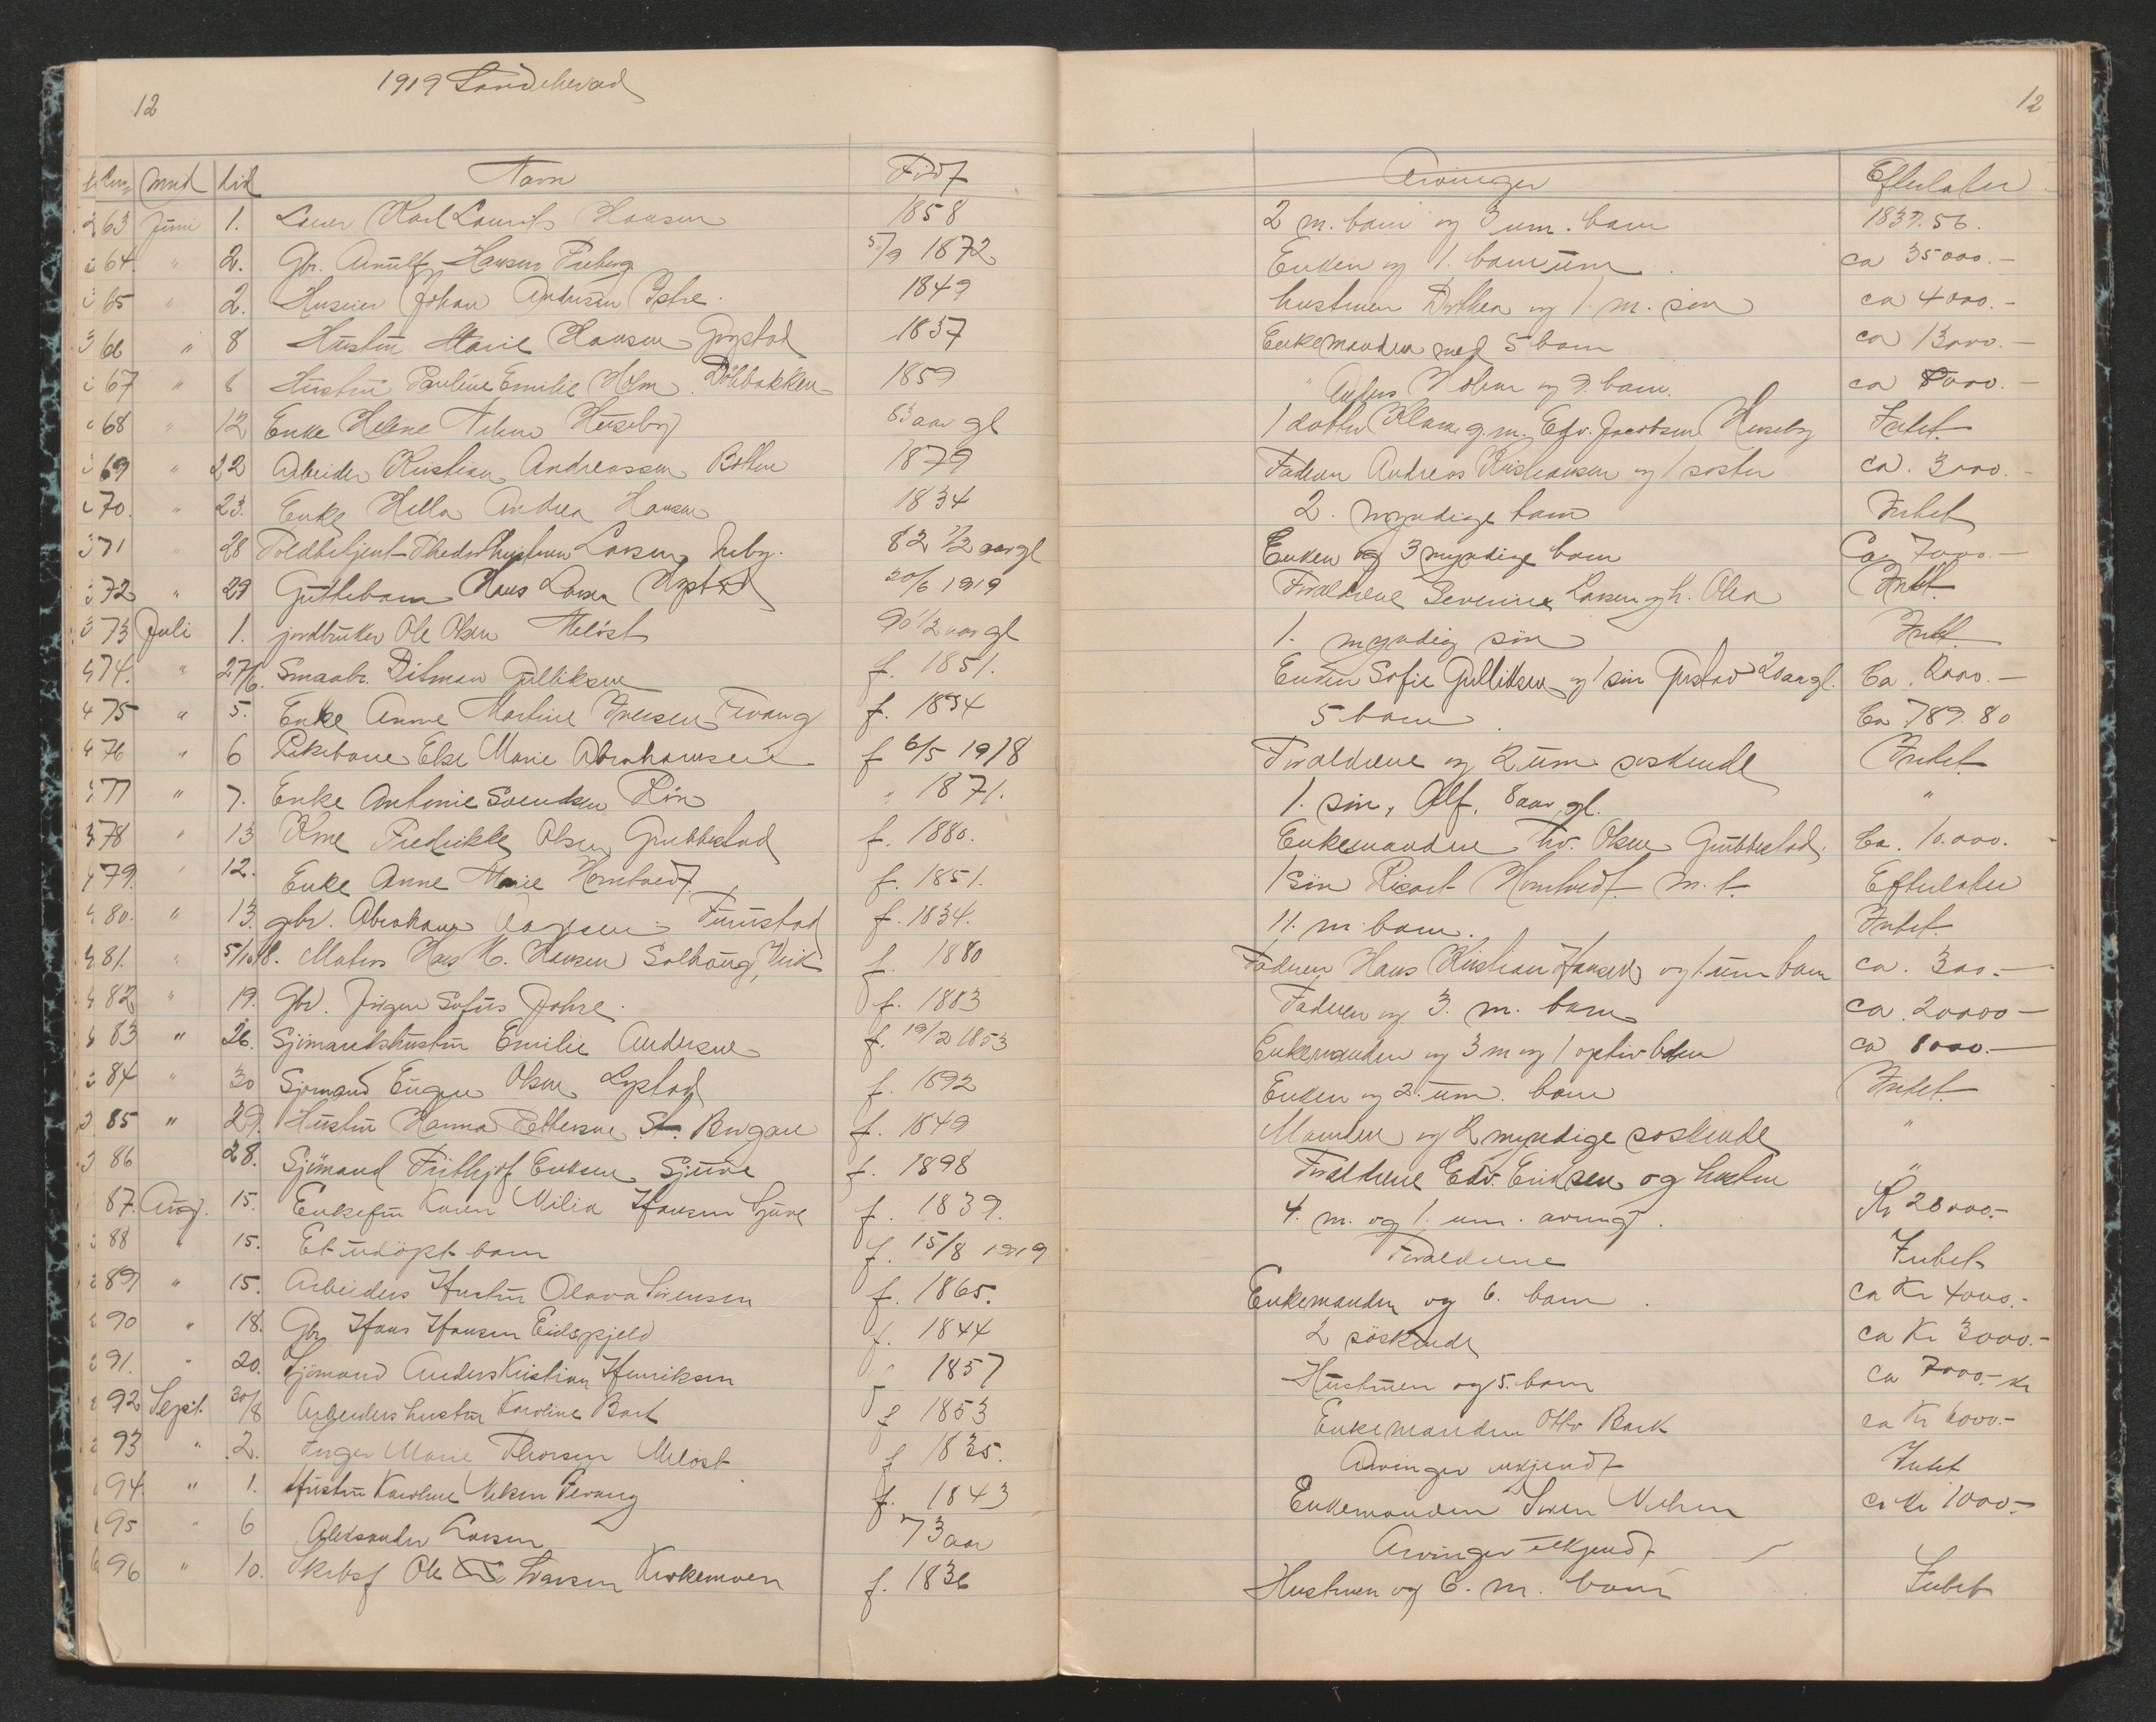 1919 Sandeherad
12
12
mnd did Navn Född Arvinger Efterlater
63 Juni 1. Karl Laurits Hansen 1858 2 m. barn og 3 um. barn 1837.56.
64. " 2. Gbr. Arnulf Hansen Freberg 5/9 1872 Enken og 1. barn um. ca 35000.-
65 " 2. Huseier Johan Andersen Istre. 1849 hustruen Dorthea og 1. m. sön ca 4000.-
66 " 8 Hustru Marie Hansen 1837 Enkemanden med 5 barn ca 13000.-
67 " 8 Hustru Pauline Emilie Holm. Dölebakken 1859 " Anders Holm og 9. barn. ca 8000.-
68 " 12 Enke Helene Huseby 83 aar gl 1 datter g.m. Edv. Jacobsen Huseby Intet.
69 " 22 Arbeider Kristian Andreassen 1879 Faderen Andreas Kristiansen og 1 söster ca. 3000.-
70. " 23. Enke Andrea Hansen 1834 2. myndige barn Intet
71 " 28 Toldbetjent Larsen, 82 1/2 aar gl Enken og 3 myndige barn Ca 7000.-
72 " 29 Guttebarn Hans Larsen 20/6 1919 Foraldrene Larsen og h. Olea Intet.
73 Juli 1. jordbruker Ole Olsen Melöst 90 1/2 aar gl 1. myndig sön Intet
74. " 27/6. Smaabr. Ditman Gulliksen f. 1851. Enken Sofie Gulliksen og 1 sön Gustav 20 aar gl. Ca. 2000.-
75 " 5. Enke Anne Martine Iversen Tevang f. 1834 5 barn Ca 789.80
76 " 6 Pikebarn Else Marie Abrahamsen f 6/5 1918 Foraldrene og 2 um söskende Intet
77 " 7. Enke Antonie Svendsen Rön " 1871. 1. sön, Alf, 8 aar gl. "
78 " 13 Kone Fredrikke Olsen Grubbestad f. 1880. Enkemanden Olsen Grubbestad. Ca. 10.000.-
79. " 12. Enke Anne Marie Homtvedt f. 1851. 1 sön Rikart Homtvedt m.t. Efterlater
80. " 13. gbr. Abraham Furustad f. 1834. 11. m. barn. Intet
81. " 5/1018. Matros Hans K. Hansen Solhaug, Virik f. 1880 Faderen Hans Kristian Hansen og 1. um barn ca. 300.-
82 " 19. Gbr. Jörgen Sofus Johre. f. 1883 Faderen og 3. m. barn ca 20000-
83 " 26. Sjömandshustru Emilie Andersen f. 19/2 1853 Enkemanden og 3 m og 1 optiv barn ca 8000.-
84 " 30 Sjömand Eugen Olsen Lystad f. 1892 Enken og 2. um. barn Intet.
85 " 29. Hustru Hanna Pettersen St. Bergan f. 1849 Manden og 2 myndige söskende "
86 28. Sjömand Frithjof Eriksen Sjuve f. 1898 Foraldrene Edv. Eriksen og hustru "
87. Aug. 15. Enkefru Karen Milia Hansen Sjuve f. 1839. 4. m. og 1. um. arving. Kr 28000.-
88 " 15. Et udöpt barn f. 15/8 1919 Foraldrene Intet
89 " 15. Arbeiders Hustru Olava Sörensen f. 1865. Enkemanden og 6. barn. ca Kr 4000.-
90 " 18. Gbr Hans Hansen Eidsfjeld f. 1844 2 söskende ca Kr 3000.-
91. " 20. Sjömand Anders Kristian Henriksen " 1857 Hustruen og 5. barn ca 7000.- kr
92 Sept. 30/8 Arbeiders hustru Karoline Bark f 1853 Enkemanden Otto Bark ca Kr 6000.-
93 " 2. Inger Marie Thorsen Melöst f 1835. Arvinger ukjendt Intet
94. " 1. Hustru Karoline Nilsen Tevang f. 1843 Enkemanden Sören Nilsen ca Kr 1000.-
95 " 6 Aleksander Larsen 73 aar Arvinger ukjendt
96 " 10. Skibsf Ole Larsen Kirkemoen f. 1836 Hustruen og 6. m. barn Intet